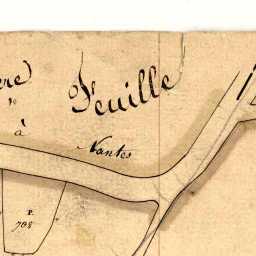 ère Feuille
de
à
Nantes
P.
708